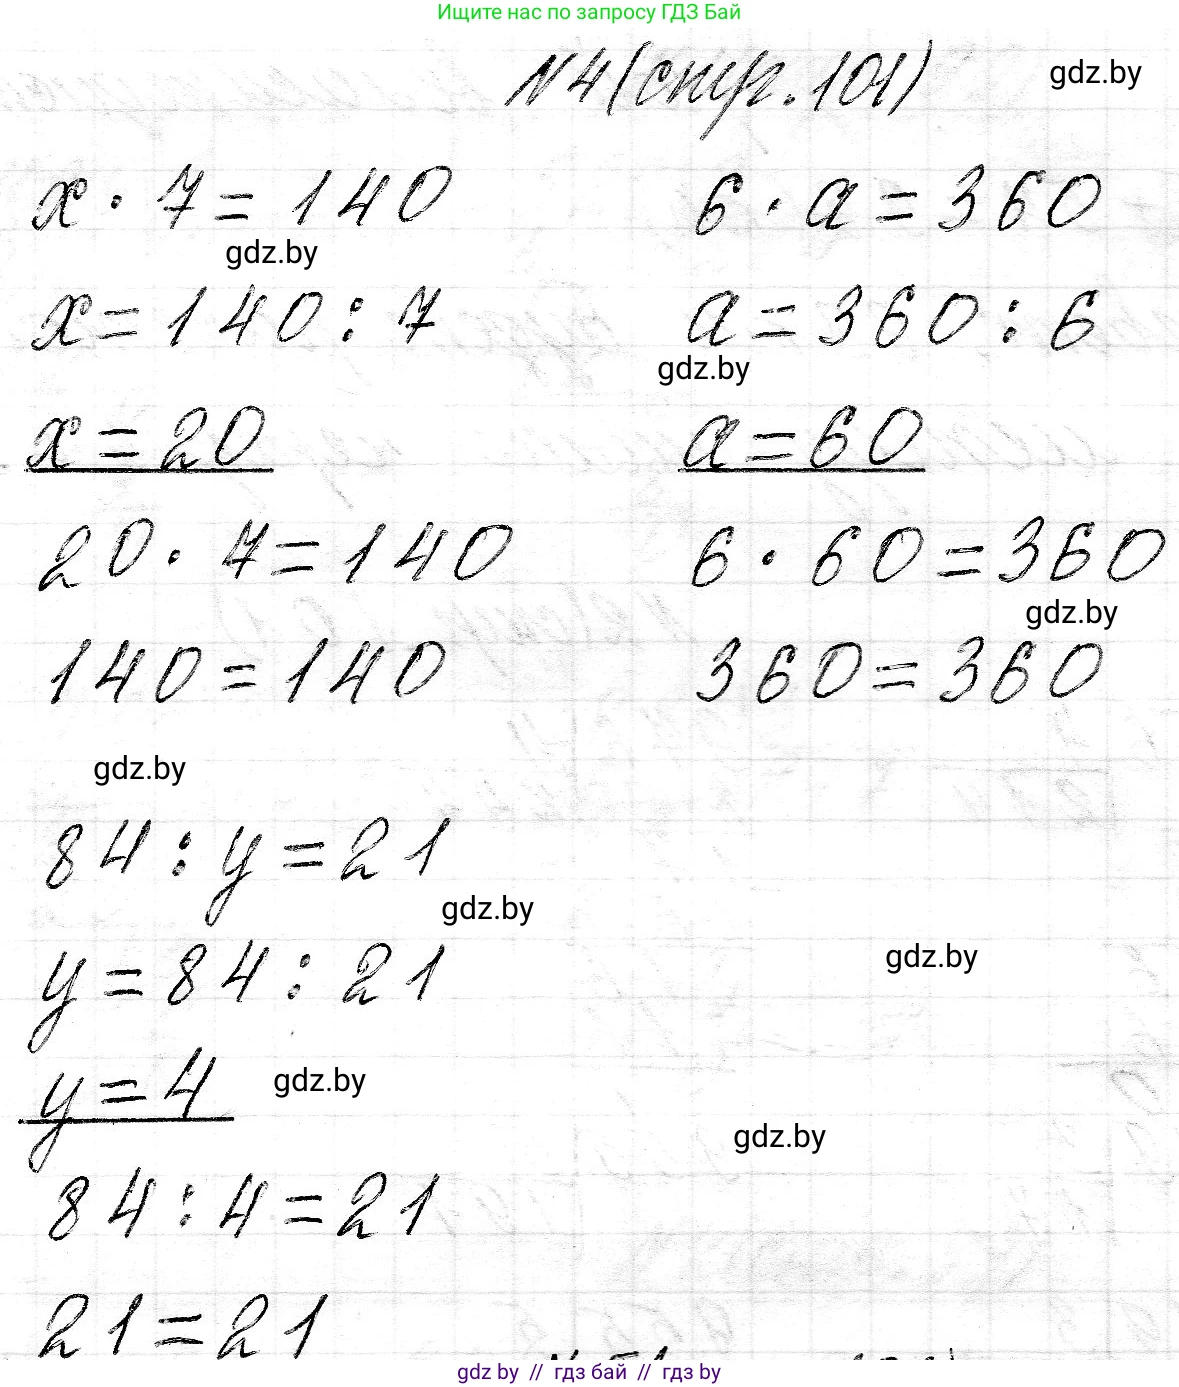 Ищите нас по запросу ГДЗ Бай
№4 (стр. 101)
gdz.by
x · 7 = 140
6 · a = 360
gdz.by
x = 140 : 7
a = 360 : 6
gdz.by
x = 20
a = 60
20 · 7 = 140
6 · 60 = 360
gdz.by
140 = 140
360 = 360
gdz.by
84 : y = 21
gdz.by
gdz.by
y = 84 : 21
y = 4
gdz.by
gdz.by
84 : 4 = 21
21 = 21
gdz.by // гдз бай // гдз by